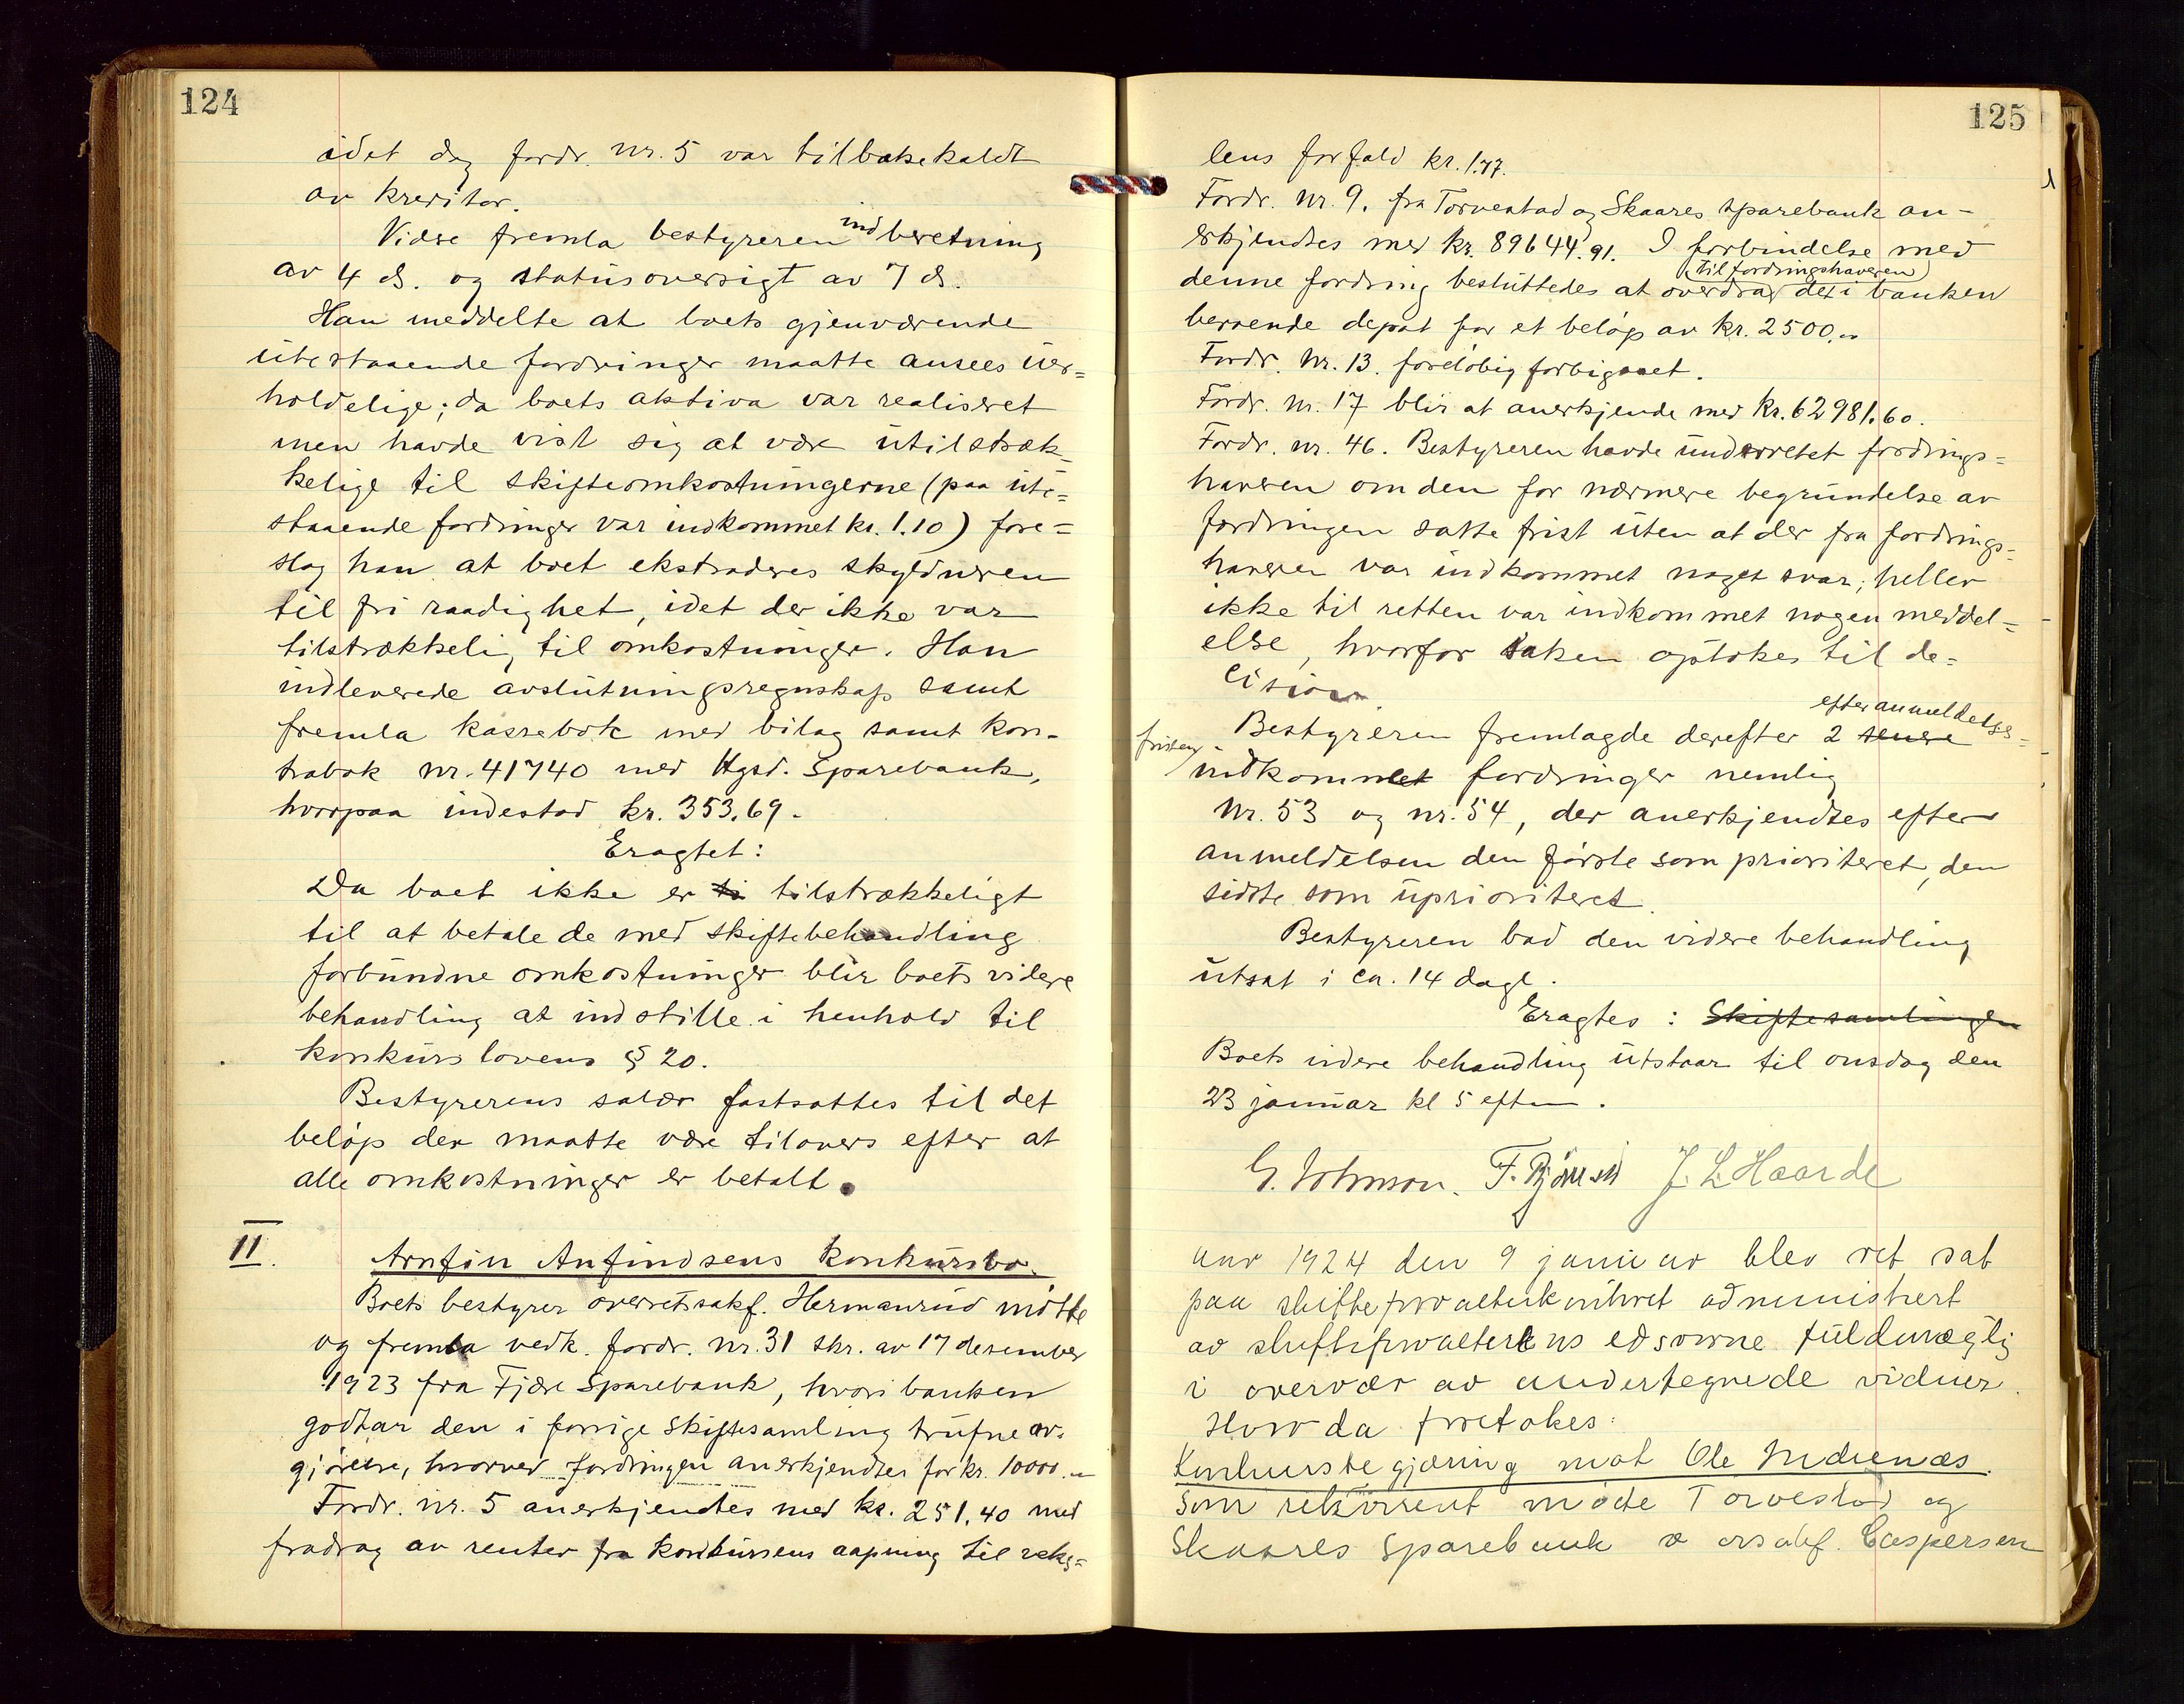 124
idet dog fordr. nr. 5 var tilbakekaldt
av kreditor.
Videre fremla bestyreren indberetning
av 4 ds. og statusoversigt av 7 ds.
Han meddelte at boets gjenværende
utestaaende fordringer maatte ansees uer=
holdelige; da boets aktiva var realiseret
men havde vist sig at være utilstræk-
kelige til skifteomkostningerne (paa ute=
staaende fordringer var indkommet kr. 1.10) fore=
slog han at boet ekstraderes skyldneren
til fri raadighet, idet der ikke var
tilstrækkelig til omkostninger. Han
indleverede avslutningsregnskap samt
fremla kassebok med bilag samt kon-
trabok nr. 41740 med Hgsd. Sparebank,
hvorpaa indestod kr. 353.69.
Eragtet:
Da boet ikke er ti tilstrækkeligt
til at betale de med skiftebehandling
forbundne omkostninger blir boets videre
behandling at indstille i henhold til
konkurslovens § 20.
Bestyrerens salær fastsattes til det
beløp der maatte være tilovers efter at
alle omkostninger er betalt.
II.
Arnfin Anfindsens konkursbo.
Boets bestyrer overretssakf. Hermanrud møtte
og fremla vedk. fordr. nr. 31 skr. av 17 desember
1923 fra Fjære Sparebank, hvori banken
godtar den i forrige skiftesamling trufne av-
gjørelse, hvorved fordringen anerkjendtes for kr. 10000.-
Fordr. nr. 5 anerkjendtes med kr. 251.40 med
fradrag av renter fra konkursens aapning til veks=
125
lens forfald kr. 1.77.
Fordr. nr. 9. fra Torvestad og Skaares sparebank an-
erkjendtes med kr. 89644.91. I forbindelse med
(til fordringshaveren)
denne fordring besluttedes at overdra det i banken
beroende depot for et beløp av kr. 2500.-
Fordr. nr. 13. foreløbig forbigaaet.
Fordr. nr. 17 blir at anerkjende med kr. 62981.60.
Fordr. nr. 46. Bestyreren havde underrettet fordrings=
haveren om den for nærmere begrundelse av
fordringen satte frist uten at der fra fordrings=
haveren var indkommet noget svar; heller
ikke til retten var indkommet nogen meddel=
else, hvorfor saken optokes til de=
cision.
efter anmeldelses=
Bestyreren fremlagde derefter 2 senere
fristen
indkommet fordringer nemlig
Nr. 53 og nr. 54, der anerkjendtes efter
anmeldelsen den første som prioriteret, den
sidste som uprioriteret.
Bestyreren bad den videre behandling
utsat i ca. 14 dage.
Eragtes: Skiftesamlingen
Boets videre behandling utstaar til onsdag den
23 januar kl 5 eftm.
G. Johnson. F. Bjørnsen J. L. Haarde
Aar 1924 den 9 januar blev ret sat
paa skifteforvalterkontoret administrert
av skifteforvalterens edsvorne fuldmægtig
i overvær av undertegnede vidner.
Hvor da foretokes:
Konkursbegjæring mot Ole
som rekvirent møtte Torvestad og
Skaares Sparebank v orsakf. Caspersen